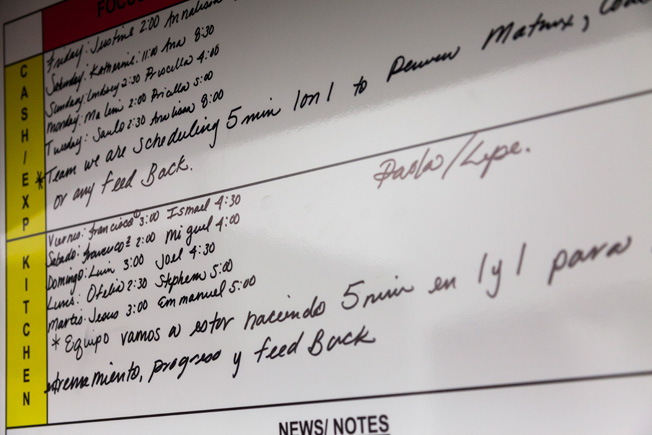 FOCUS
CASH/EXP
Friday: Justine 2:00 Annalisa
Saturday: Katherine 11:00 Ana 8:30
Sunday: Lindsey 2:30 Priscilla 4:00
Monday: Malin 2:00 Pricilla 5:00
Tuesday: Saulo 2:30 Analissa 8:00
*Team we are scheduling 5min 1on1 to Matrix,
or any feed Back.
KITCHEN
Viernes: francisco 3:00 Ismael 4:30
Sabado: francisco 2:00 Miguel 4:00
Domingo: Luis 3:00 Joel 4:30
Lunes: Ofelio 2:30 Stephem 5:00
Martes: Jesus 3:00 Emmanuel 5:00
* Equipo vamos a estar haciendo 5min en 1 y 1 para
entrenamiento, progreso y feed Back
NEWS/ NOTES